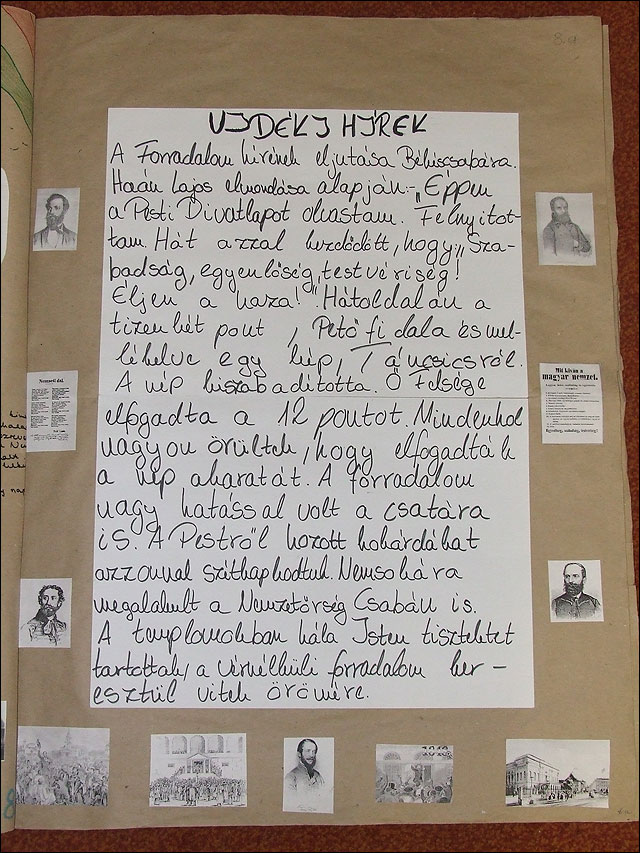 VIDÉKI HÍREK
A Forradalom hírének eljutása Békéscsabára.
Haán Lajos elmondása alapján:- „Éppen
a Pesti Divatlapot olvastam. Felnyitot-
tam. Hát azzal kezdődött, hogy „Sza-
badság, egyenlőség, testvériség!
Éljen a haza!". Hátoldalán a
tizenkét pont, Petőfi dala és mel-
lékelve egy kép, Táncsicsról.
A nép kiszabadította. Ő Felsége
elfogadta a 12 pontot. Mindenhol
nagyon örültek, hogy elfogadták
a nép akaratát. A forradalom
nagy hatással volt a csatára
is. A Pestről hozott kokárdákat
azzonnal szétkapkodtuk. Nemsokára
megalakult a Nemzetőrség Csabán is.
A templomokban hála Isten tiszteletet
tartottak, a vérnélküli forradalom ker-
esztül vitek örömére.
Nemzeti dal.
Mit kíván a
magyar nemzet.